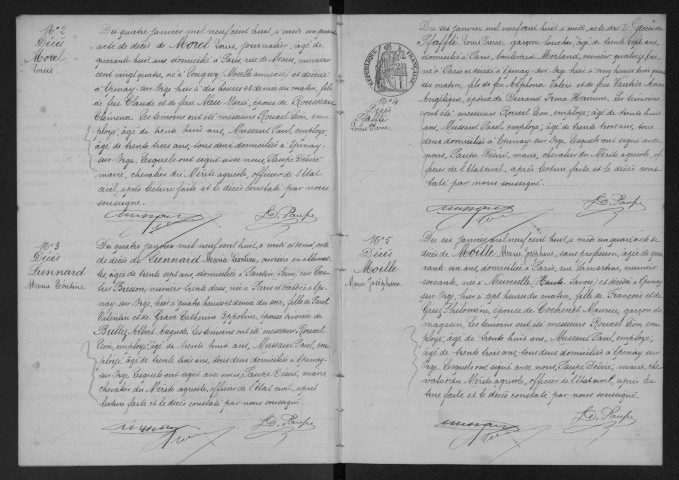 N° 2
Décès
Morel
Louis
Du quatre janvier mil neuf cent huit, à midi un quart
acte de décès de Morel Louis, journalier, âgé de
quarante huit ans, domicilié à Paris, rue de Meaux, numéro
cent vingt quatre, né à Longwy, Moselle annexée et décédé
à Epinay-sur-Orge hier à dix heures et demie du matin, fils
de feu Claude et de feu Marie, époux de Rousseau
Les témoins ont été messieurs Rouxel Léon, em-
ployé, âgé de trente huit ans, Musserez Paul, employé,
âgé de trente trois ans, tous deux domiciliés à Epinay-
sur-Orge, lesquels ont signé avec nous, Paupe Désiré
maire, chevalier du Mérite agricole, officier de l'état
civil, après lecture faite et le décès constaté par nous
soussigné.
D. Paupe
N° 3
Décès
Lennard
Maria Léontine
Du quatre janvier mil neuf cent huit, à midi et demi, acte
de décès de Lennard Maria Léontine, ouvrière en allumet-
tes, âgée de trente sept ans, domiciliée à Pantin, Seine, rue
Besson, numéro trente deux, née à Paris et décédée à Epi-
nay-sur-Orge, hier à quatre heures et demie du soir, fille de Paul
Valentin et de Grave Catherine Appoline, épouse divorcée de
Albert Auguste. Les témoins ont été messieurs Rouxel
Léon, employé, âgé de trente huit ans, Musserez Paul, em-
ployé, âgé de trente trois ans, tous deux domiciliés à Epinay-
sur-Orge, lesquels ont signé avec nous, Paupe Désiré, maire
chevalier du Mérite agricole, officier de l'état civil, après
lecture faite et le décès constaté par nous soussigné.
D. Paupe
RÉPUBLIQUE FRANÇAISE
N° 4
Décès
Pfaffli
Louis Pierre
Du six janvier mil neuf cent huit à midi, acte de décès de
Pfaffli Louis Pierre, garçon boucher, âgé de trente sept ans,
domicilié à Paris, boulevard Morland, numéro quatorze
né à Paris et décédé à Epinay-sur-Orge hier à cinq heures
du matin, fils de feu Alphonse Valère et de Vautier
Angélique, époux de Ferrand Irma Hermine. Les témoins
ont été messieurs Rouxel Léon, employé, âgé de trente huit
ans, Musserez Paul, employé, âgé de trente trois ans, tous
deux domiciliés à Epinay-sur-Orge, lesquels ont signé avec
nous, Paupe Désiré, maire, chevalier du Mérite agricole, of-
ficier de l'état civil, après lecture faite et le décès cons-
taté par nous soussigné.
D. Paupe
N° 5
Décès
Moille
Marie Joséphine
Du six janvier mil neuf cent huit, à midi un quart acte de
décès de Moille Marie Joséphine, sans profession, âgée de qua-
rante un ans, domiciliée à Paris, rue Lamartine, numéro
soixante, née à Marcelle (Haute Savoie) et décédée à Epinay-
sur-Orge hier à sept heures du matin, fille de François et de
Philomène, épouse de Maurice, garçon de
magasin. Les témoins ont été messieurs Rouxel Léon, em-
ployé, âgé de trente huit ans, Musserez Paul, employé,
âgé de trente trois ans, tous deux domiciliés à Epinay-sur-
Orge lesquels ont signé avec nous, Paupe Désiré, maire, che-
valier du Mérite agricole, officier de l'état civil, après lec-
ture faite et le décès constaté par nous soussigné.
D. Paupe